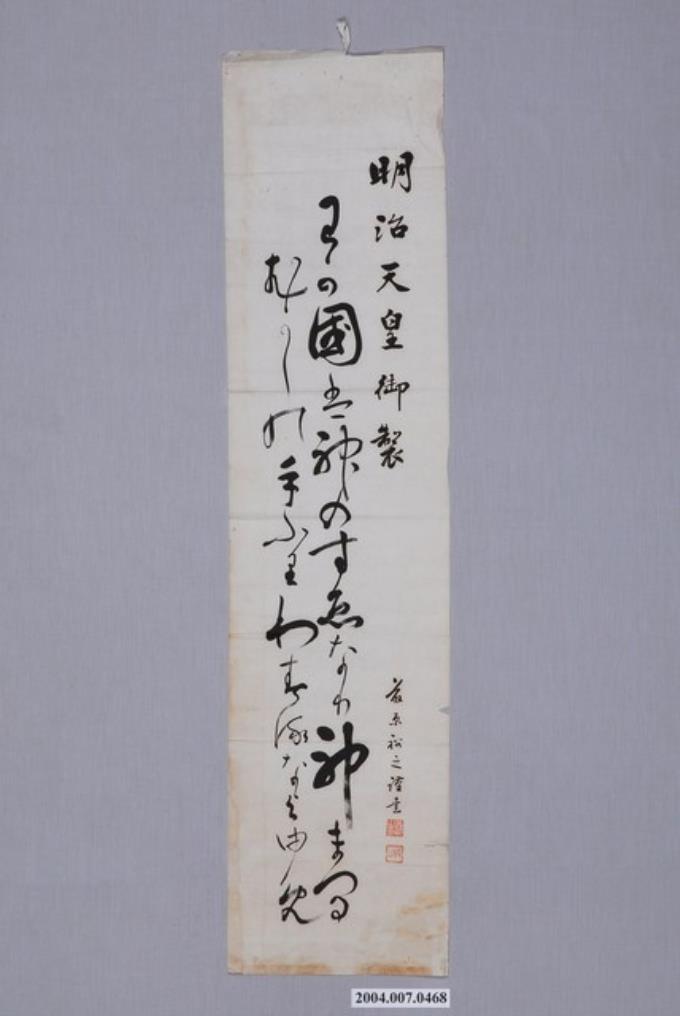 明治天皇御製
わか國は神のすゑなり神まつる
むかしの手ふりわするなよゆめ
之謹書
2004.007.0468